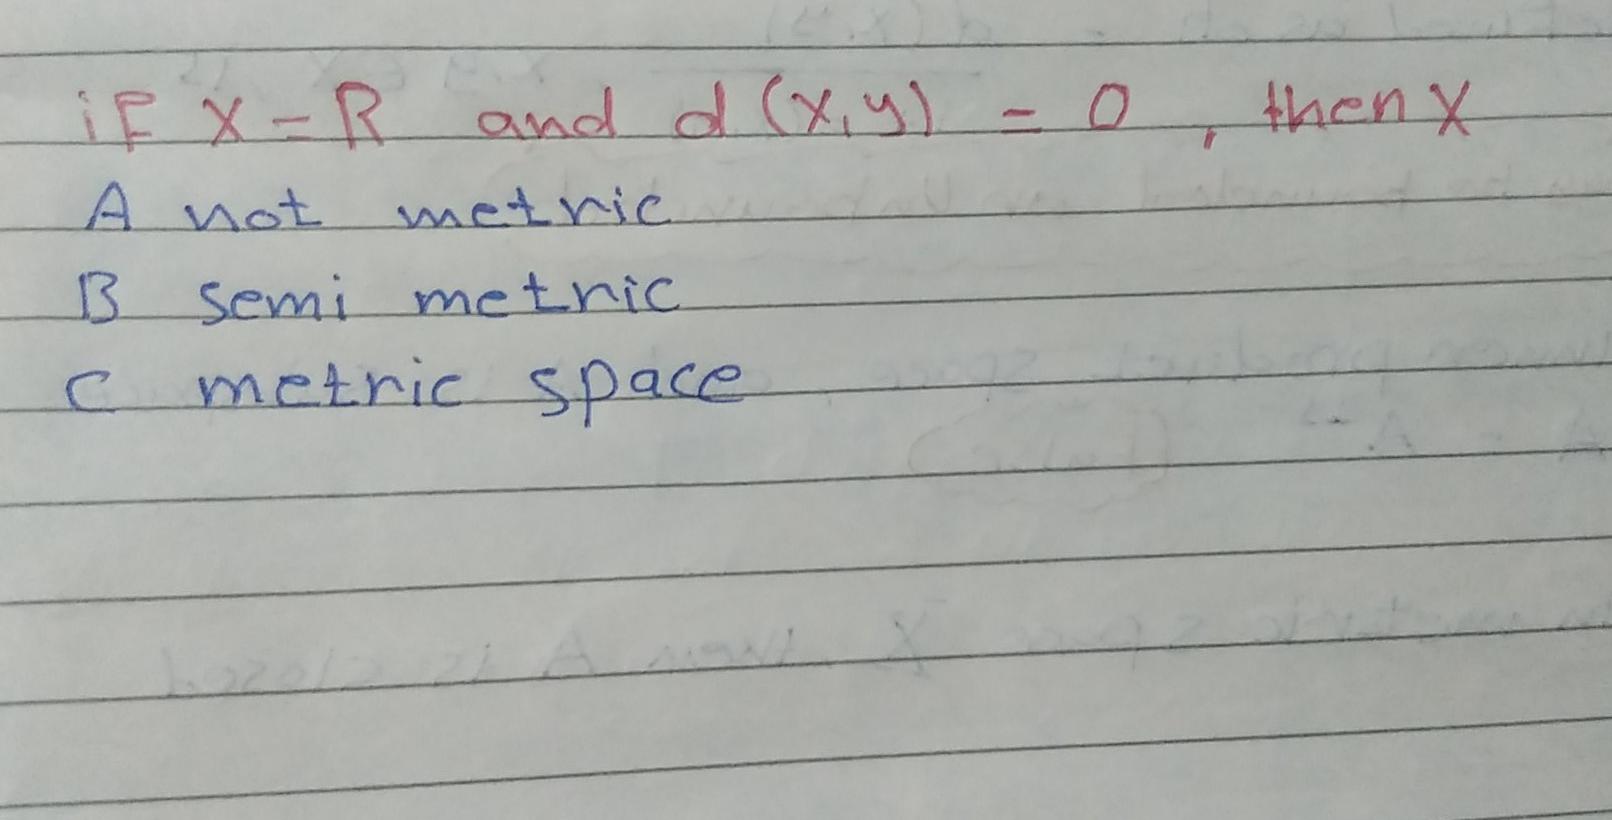 if X = R and d (x,y) = 0 , then X
A not metric
B semi metric
C metric space